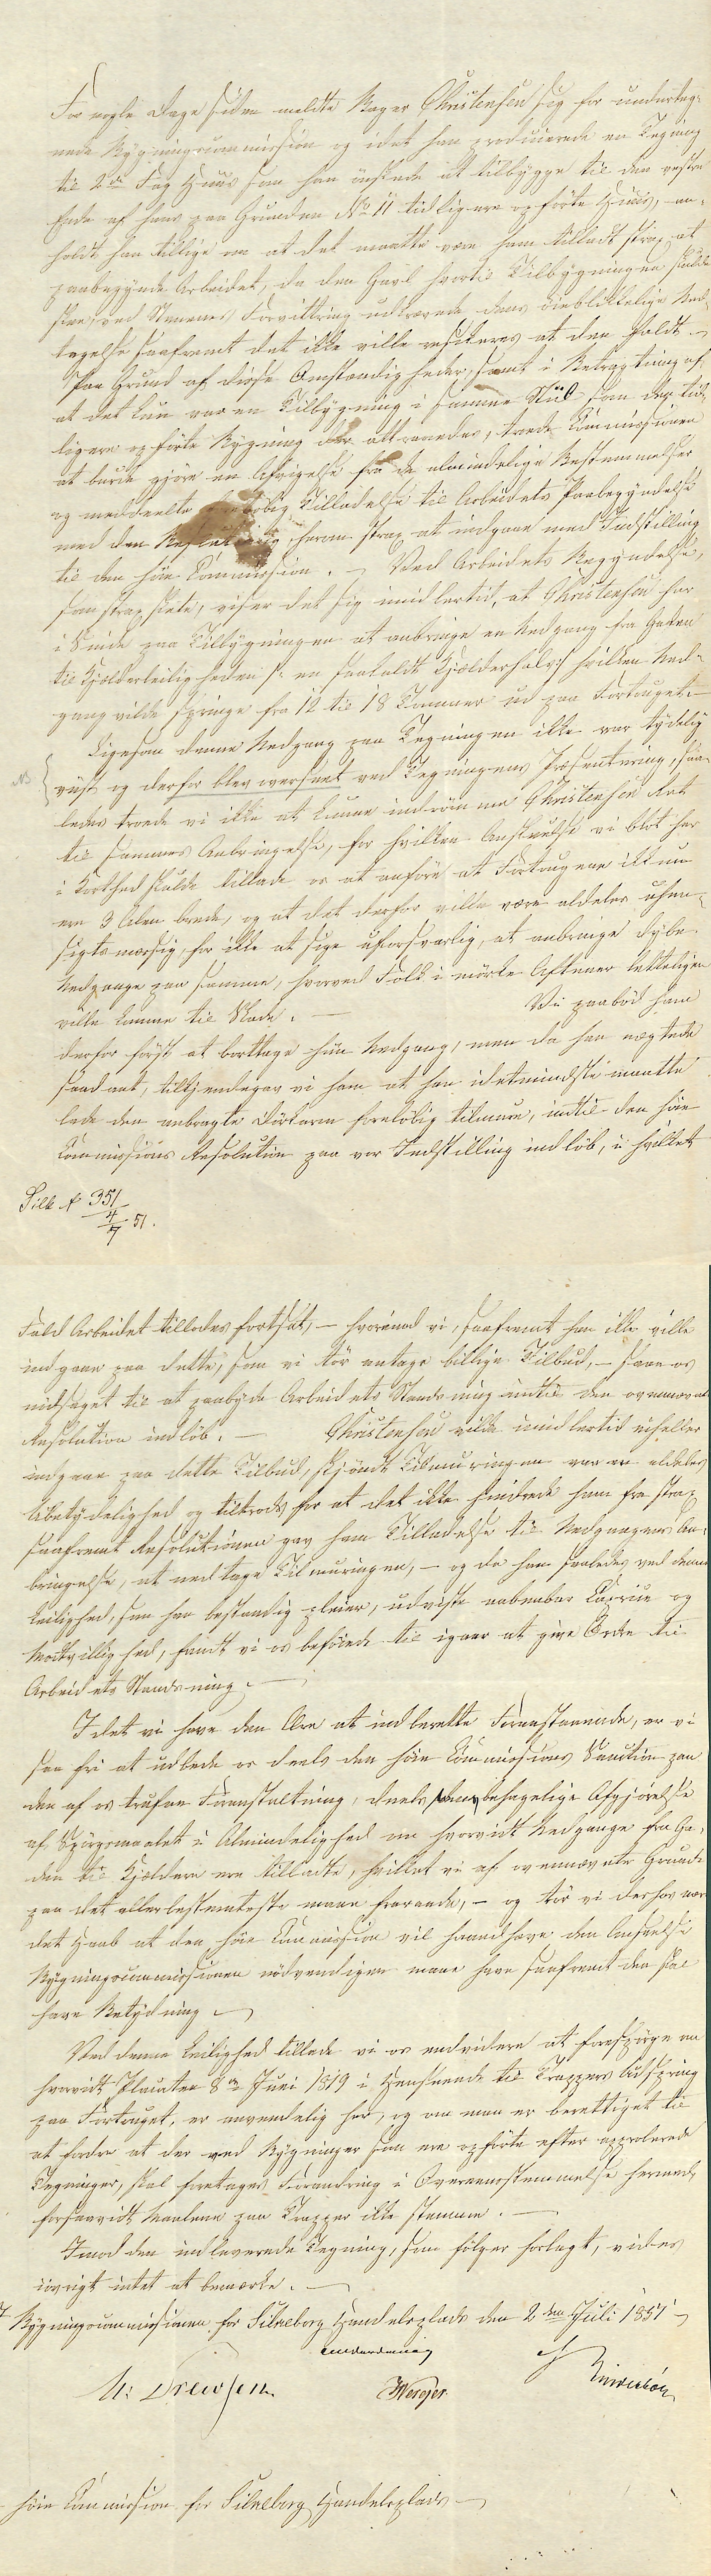 For nogle Dage siden meldte Bager Christensen sig for underteg-
nede Bygningscommission og idet han producerede en Tegning
til 2de Fag Huus som han önskede at tilbygge til den vestre
Ende af hans paa Grunden No 11 tidligere opförte Huus, an-
holdt han tillige om at det maatte være ham tilladt strax at
paabegynde Arbeidet, da den Gavl hvortil Tilbygningen skulde
skee, ved Stenenes Forvittring udkrævede dens öieblikkelige Ned-
tagelse saafremt det ikke ville resikeres at den faldt. –
Paa Grund af disse Omstændigheder, samt i Betragtning af
at det kun var en Tilbygning i samme Stiil som den tid-
ligere opförte Bygning der attraaedes, troede Commissionen
at burde gjöre en Afvigelse fra de almindelige Bestemmelser
og meddeelte forelöbig Tilladelse til Arbeidets Paabegyndelse
med den Beslutning, herom strax at indgaae med Indstilling
til den höie Commission. – Ved Arbeidets Begyndelse,
som strax skete, viser det sig imidlertid, at Christensen har
i Sinde paa Tilbygningen at anbringe en Nedgang fra Gaden
til Kjælderleiligheden /: en saakaldt Kjælderhals :/ hvilken Ned-
gang vilde springe fra 12 til 18 Tommer ud paa Fortouget. –
Ligesom denne Nedgang paa Tegningen ikke var tydelig
NB viist og derfor blev overseet ved Tegningens Præsentering, saa-
ledes troede vi ikke at kunne indrömme Christensen Ret
til sammes Anbringelse, for hvilken Anskuelse vi blot her
i Korthed skulde tillade os at anföre at Fortougene ikkun
ere 3 Alen brede, og at det derfor ville være aldeles uhen-
sigtsmæssig, for ikke at sige uforsvarlig, at anbringe dybe
Nedgange paa samme, hvorved Folk i mörke Aftener letteligen
ville komme til Skade. – Vi paabød ham
derfor först at borttage hiin Nedgang, men da han nægtede
saadant, tilkjendegav vi ham at han idetmindste maatte
lade den anbragte Dörkarm forelöbig tilmure, indtil den höie
Commissions Resolution paa vor Indstilling indlöb, i hvilket
Silk. No 351
4/7 51.
Fald Arbeidet tillodes fortsat, – hvorimod vi, saafremt han ikke ville
indgaae paa dette, som vi tör antage billige Tilbud, – saae os
nødsaget til at paabyde Arbeidets Standsning indtil den ovennævnte
Resolution indlöb. – Christensen vilde imidlertid eiheller
indgaae paa dette Tilbud, skjöndt Tilmuringen var en aldeles
Ubetydelighed og tiltrods for at det ikke hindrede ham fra strax
saafremt Resolutionen gav ham Tilladelse til Nedgangens An-
bringelse, at nedtage Tilmuringen, – og da han saaledes ved denne
Leilighed, som han bestandig pleier, udviste aabenbar Caprice og
Modvillighed, fandt vi os beföiede til igaar at give Ordre til
Arbeidets Standsning. –
Idet vi have den Ære at indberette Foranstaaende, er vi
saa fri at udbede os deels den höie Commissions Sanction paa
den af os trufne Foranstaltning, deels dens behagelige Afgjörelse
af Spörgsmaalet i Almindelighed om hvorvidt Nedgange fra Ga-
den til Kjældere ere tilladte, hvilket vi af ovennævnte Grunde
paa det allerbestemteste maae fraraade, – og tör vi derfor nære
det Haab at den höie Commission vil haandhæve den Anseelse
Bygningscommissionen nödvendigen maae have saafremt den skal
have Betydning. –
Ved denne Leilighed tillade vi os endvidere at forespörge om
hvorvidt Placaten 8de Juni 1819 i Henseende til Trappers Udspring
paa Fortouget, er anvendelig her, og om man er berettiget til
at fordre at der ved Bygninger som ere opförte efter approberede
Tegninger, skal foretages Forandring i Overeensstemmelse hermed,
forsaavidt Maalene paa Trapper ikke stemme. –
Imod den indleverede Tegning, som fölger forlagt, vides
iövrigt intet at bemærke. –
Bygningscommissionen for Silkeborg Handelsplads den 2den Juli 1851
M: Drewsen Werger
höie Commission for Silkeborg Handelsplads